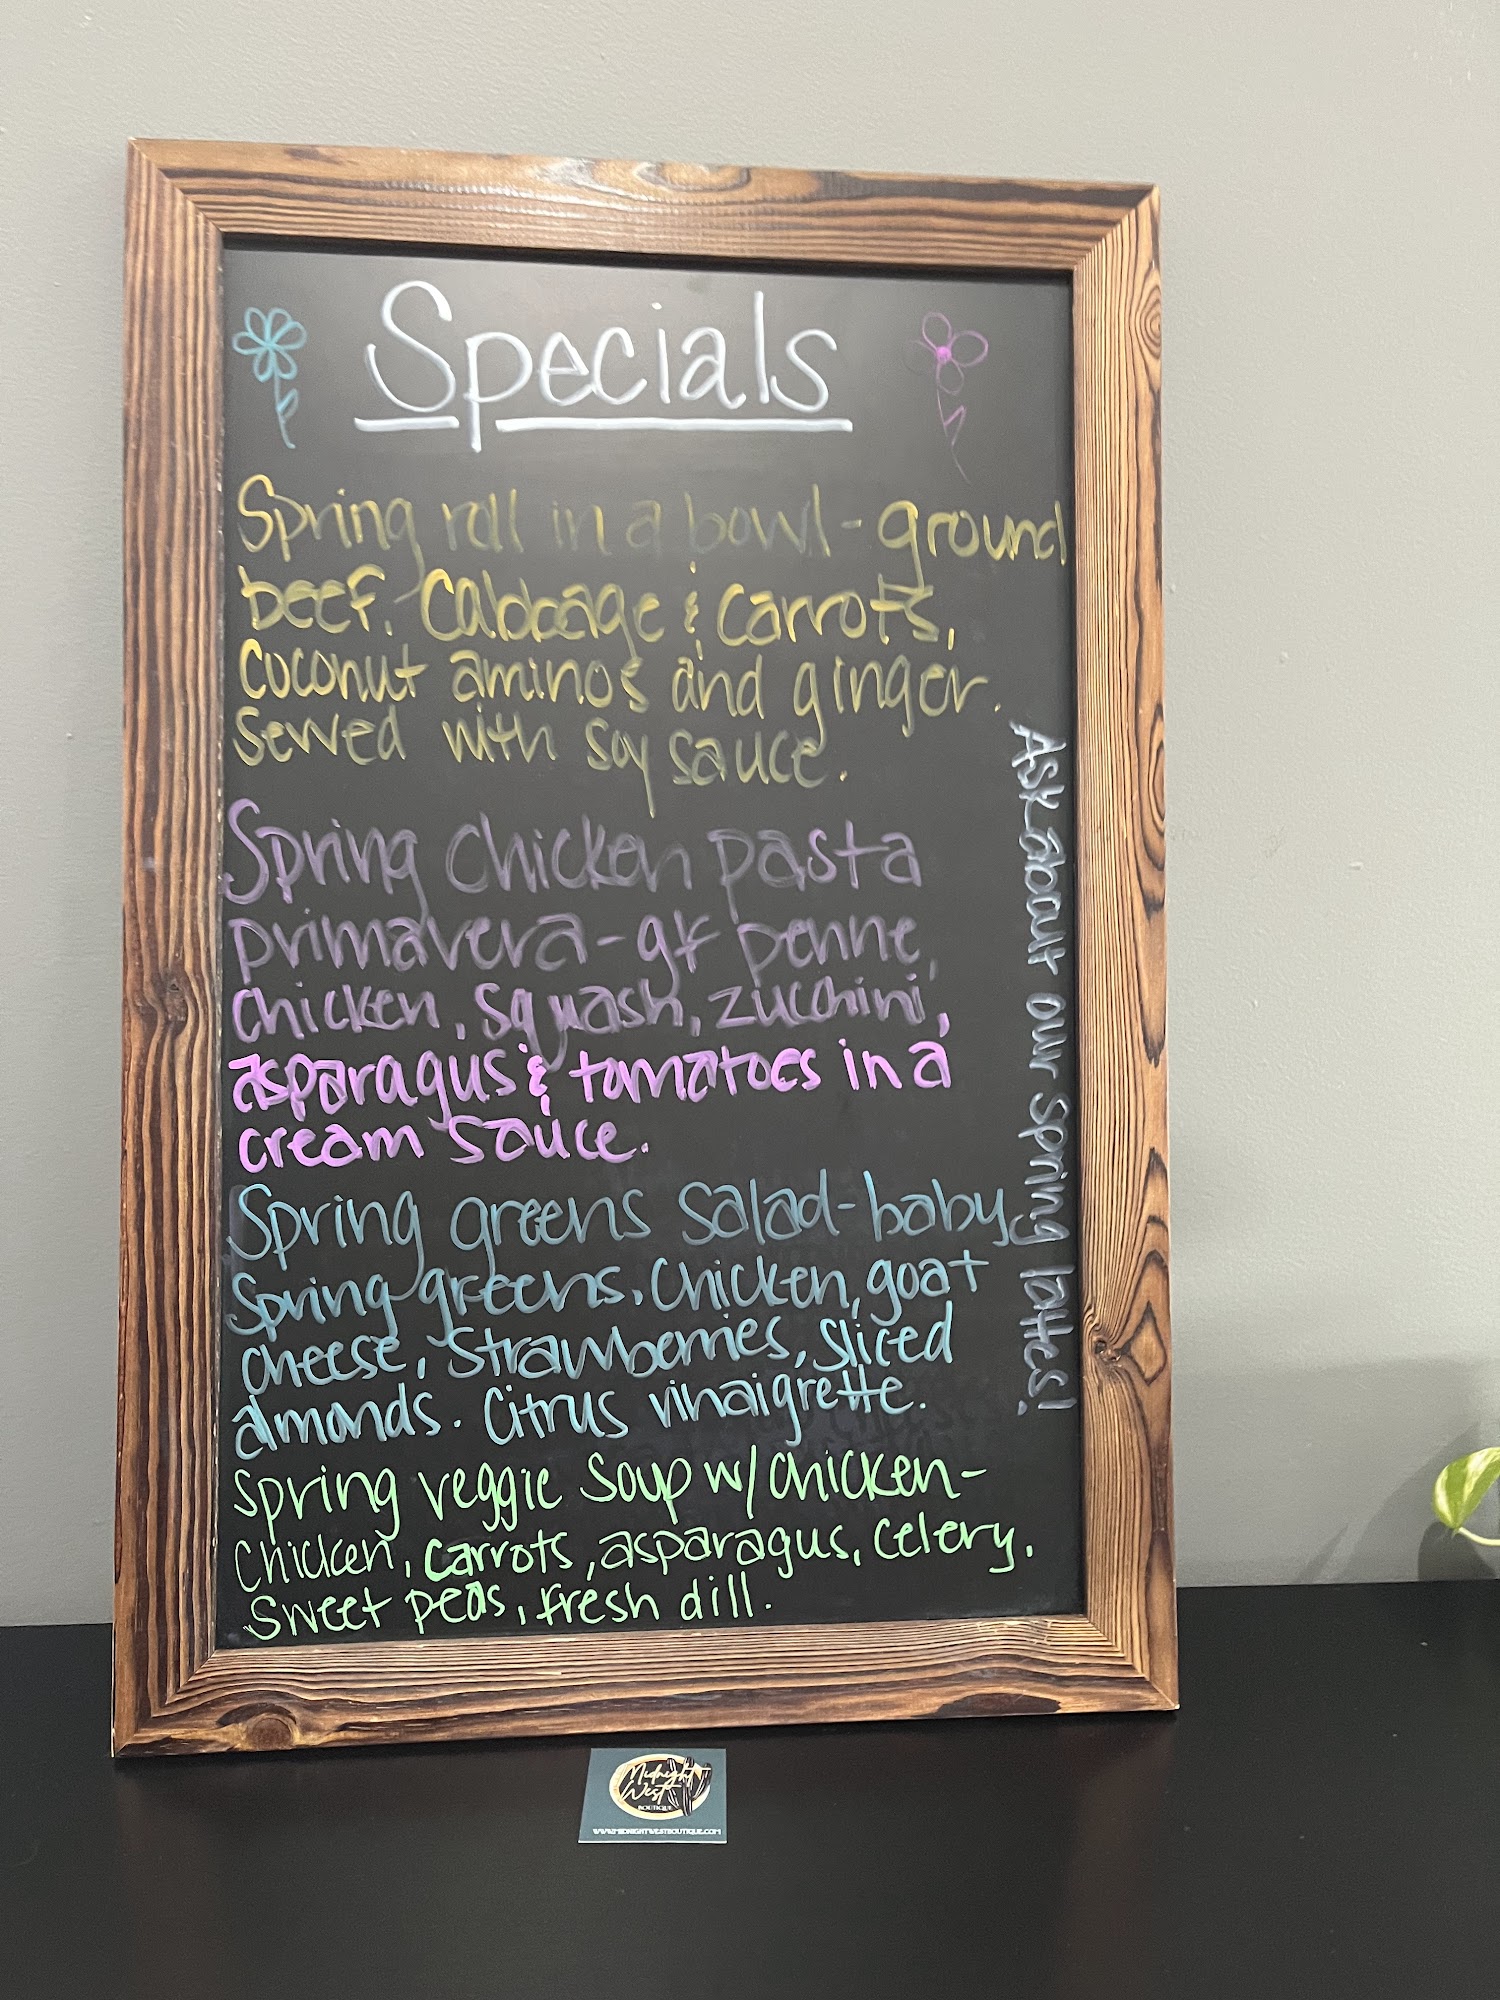 Specials
Spring roll in a bowl - ground
beef. Cabbage & carrots,
coconut aminos and ginger.
Served with soy sauce.
Spring chicken pasta
primavera - gf penne,
chicken, squash, zucchini,
asparagus & tomatoes in a
cream sauce.
Spring greens salad - baby
spring greens, chicken, goat
cheese, strawberries, sliced
almonds. Citrus vinaigrette.
Spring veggie soup w/ chicken -
chicken, carrots, asparagus, celery,
sweet peas, fresh dill.
Ask about our spring lattes!
Midnight
West
BOUTIQUE
WWW.MIDNIGHTWESTBOUTIQUE.COM